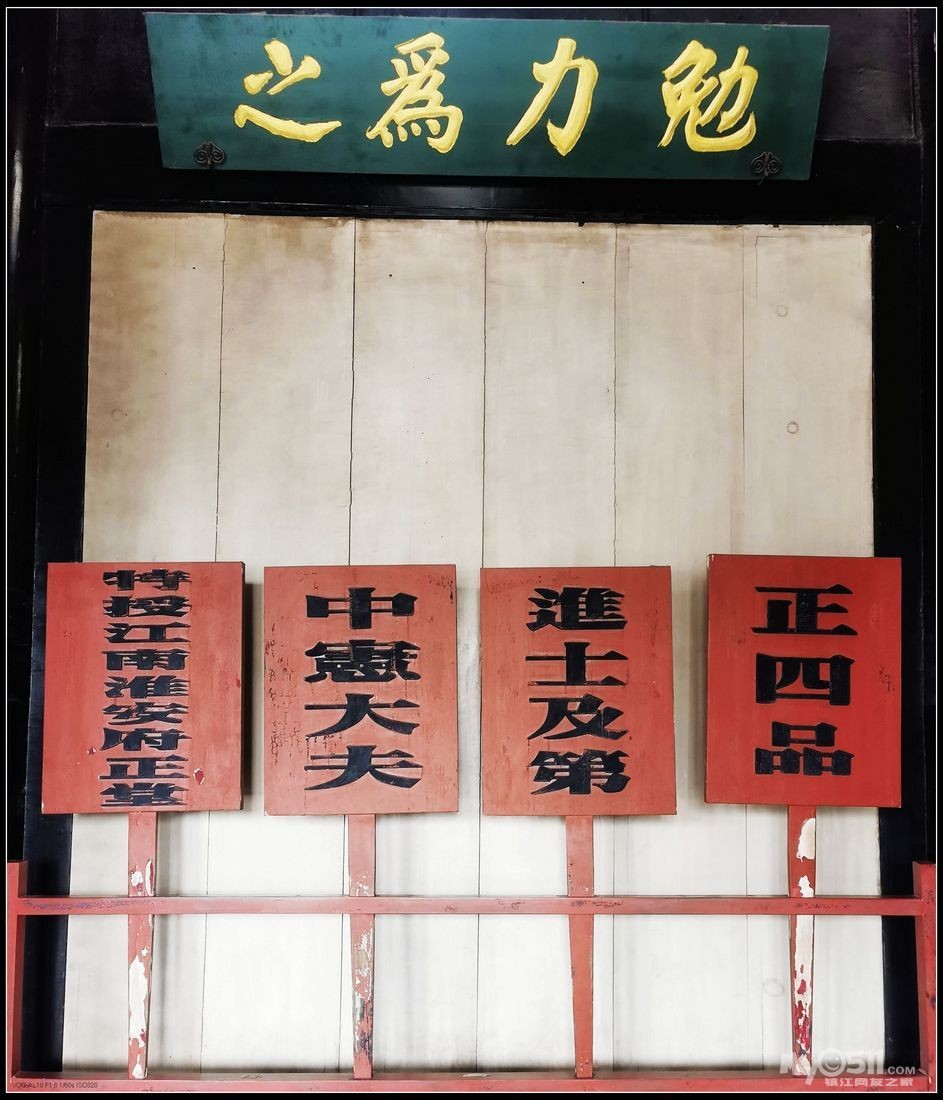 勉力為之
正四品
進士及第
中憲大夫
特授江南淮安府正堂
VOG-AL10 F1.6 1/60s ISO320
My0511.COM
镇江网友之家